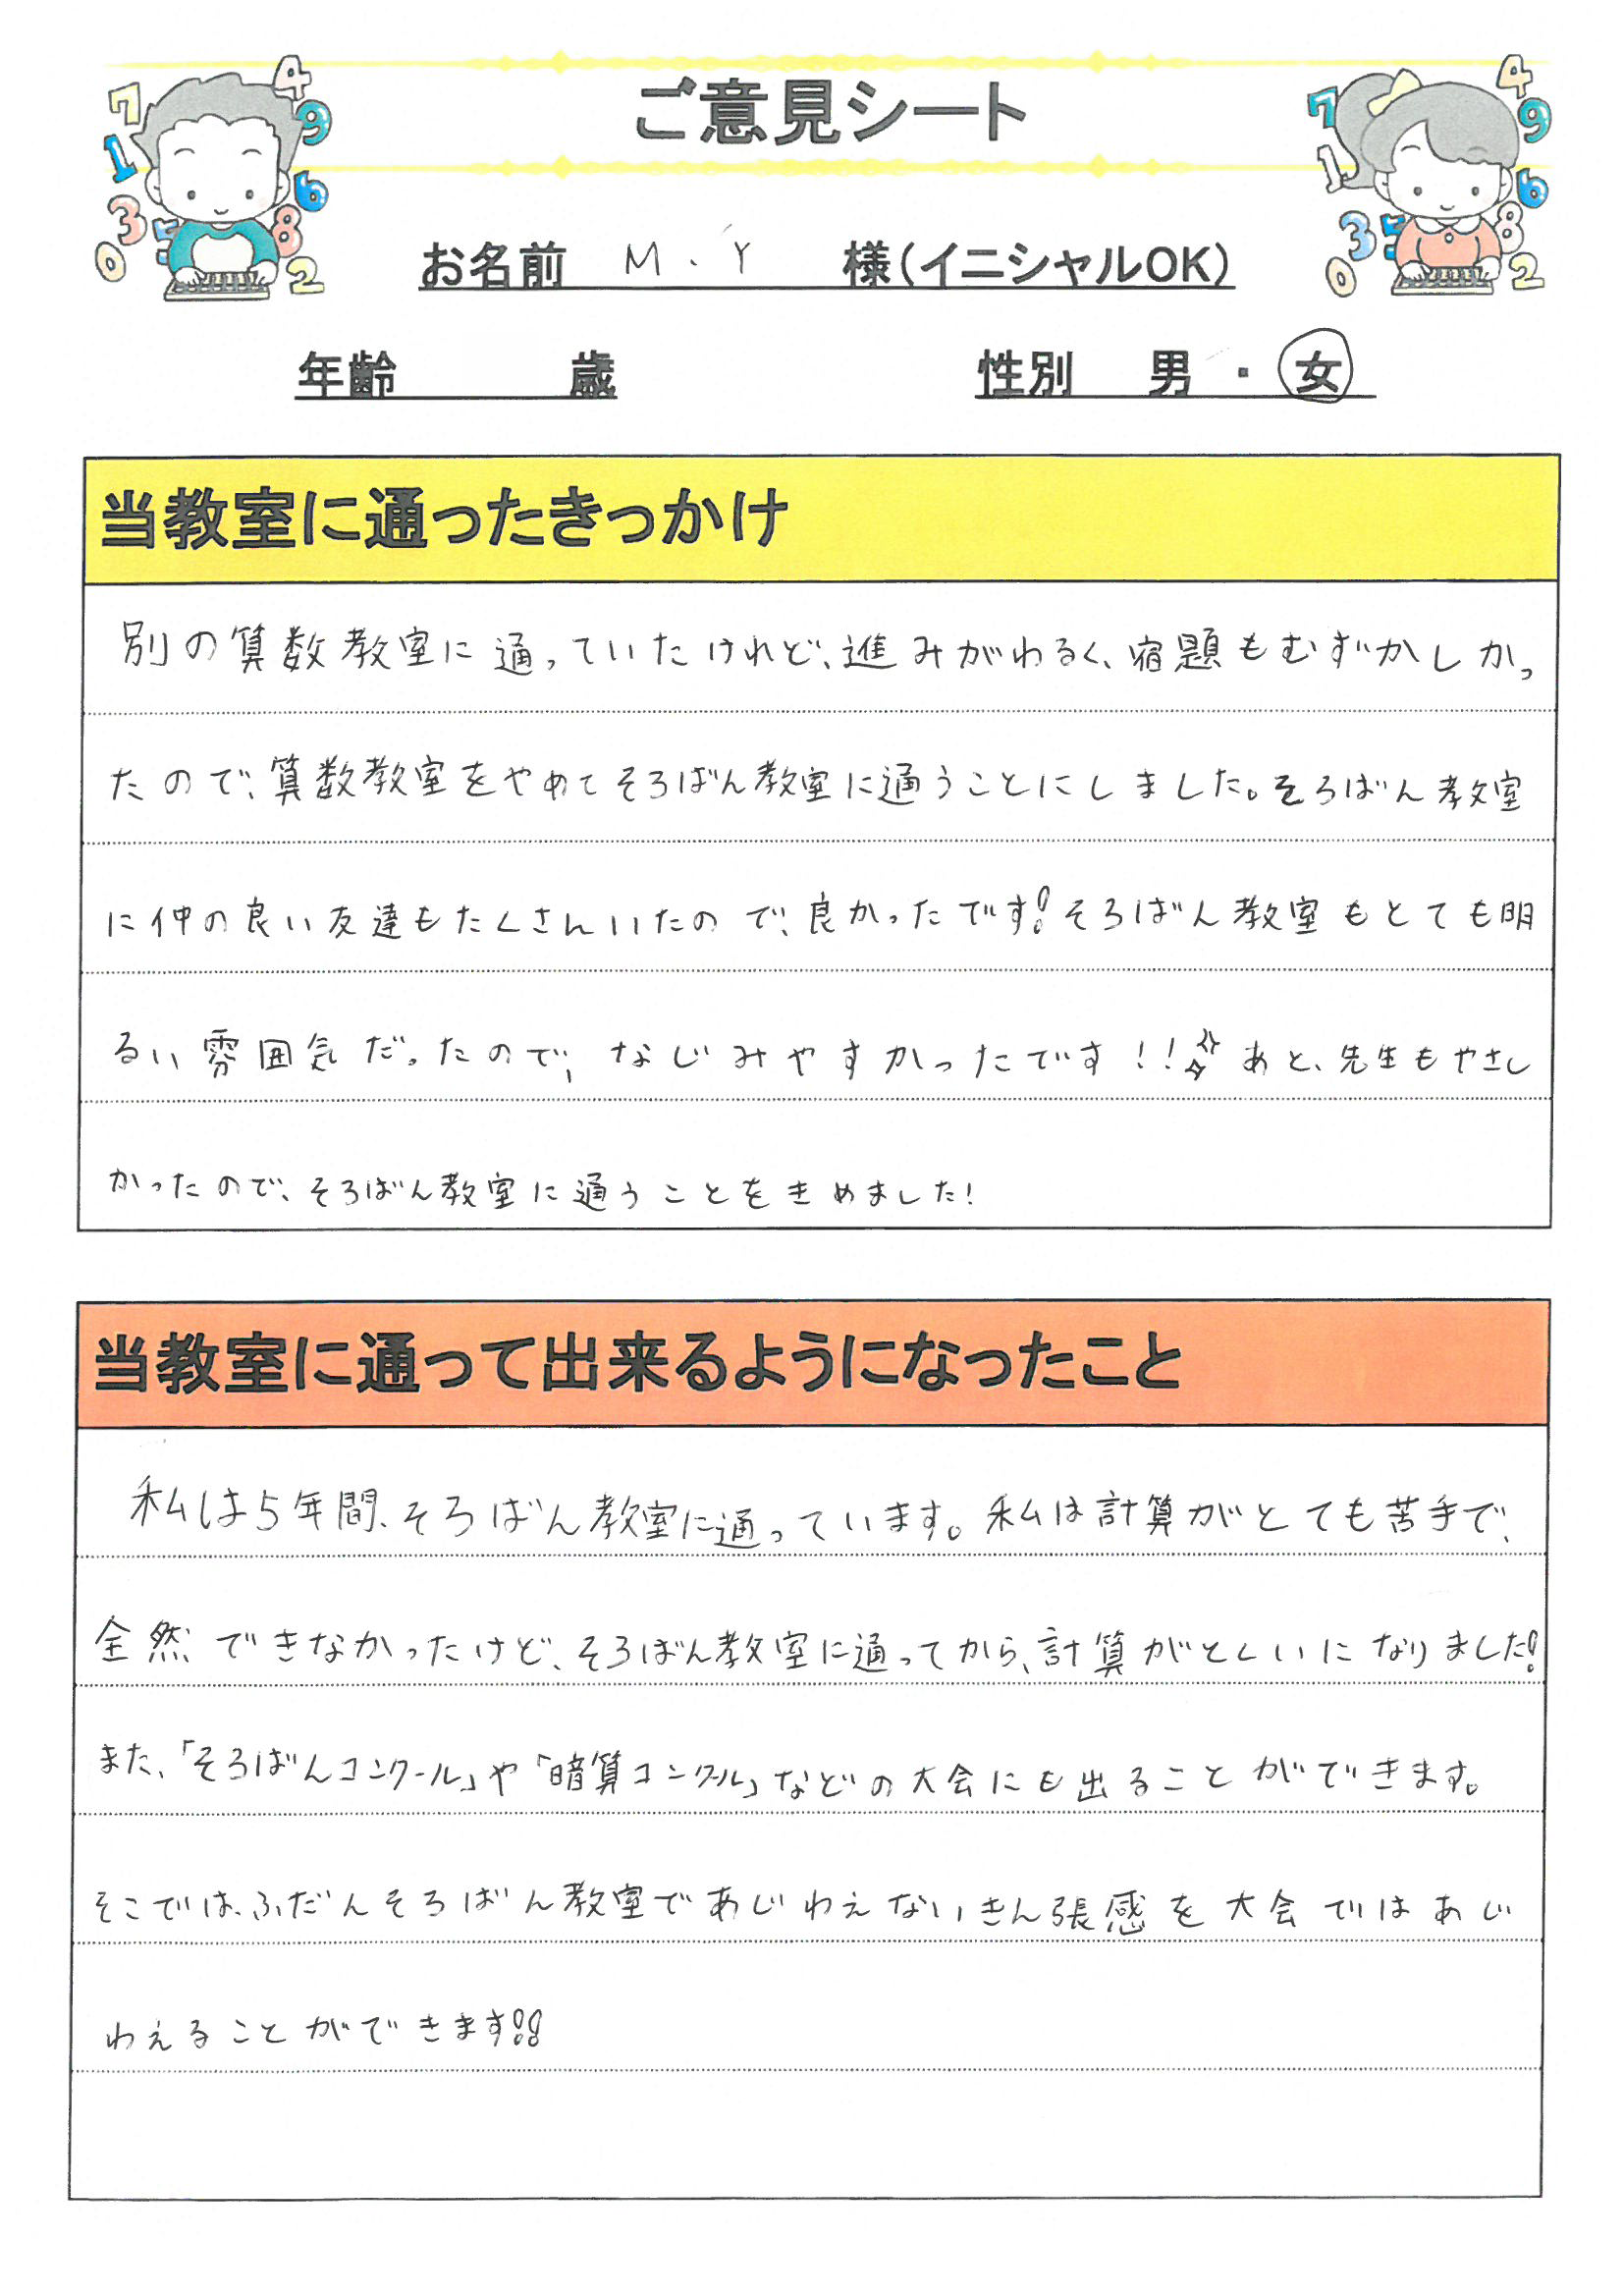 ご意見シート
お名前 M.Y 様(イニシャルOK)
年齢 歳 性別 男・女
当教室に通ったきっかけ
別の算数教室に通っていたけれど、進みがわるく、宿題もむずかしかっ
たので、算数教室をやめてそろばん教室に通うことにしました。そろばん教室
に仲の良い友達もたくさんいたので、良かったです!そろばん教室もとても明
るい雰囲気だったので、なじみやすかったです!!あと、先生もやさし
かったので、そろばん教室に通うことをきめました!
当教室に通って出来るようになったこと
私は5年間、そろばん教室に通っています。私は計算がとても苦手で、
全然できなかったけど、そろばん教室に通ってから、計算がとくいになりました!
また、「そろばんコンクール」や「暗算コンクール」などの大会にも出ることができます。
そこでは、ふだんそろばん教室であじわえないきん張感を大会ではあじ
わえることができます!!
7 4 1 9 3 6 5 8 0 2
7 4 1 9 3 6 5 8 0 2